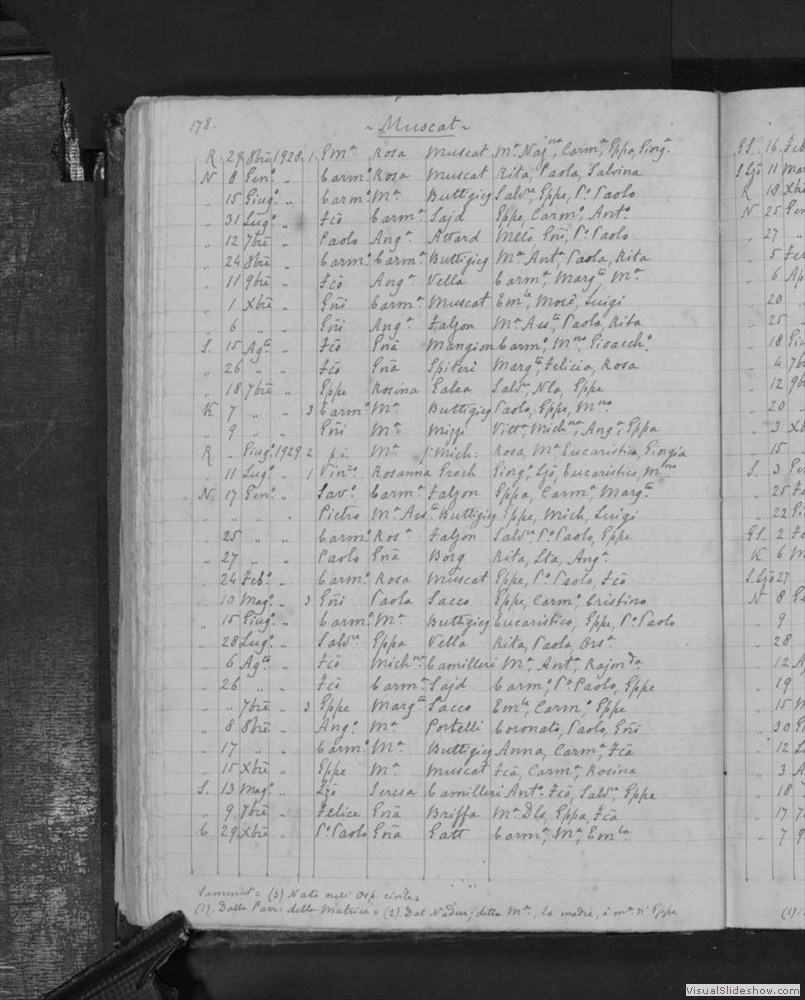 178.
~ Muscat ~
R 29 8bre 1928 1 Gma Rosa Muscat Ma Najna, Carma, Gppa, Giorga
N 8 Geno „ Carmo Rosa Muscat Rita, Paola, Salvina
„ 15 Giugo „ Carmo Ma Buttigieg Salvre, Gppe, Po Paolo
„ 31 Lugo „ Fco Carma Sajd Gppe, Carmo, Anto
„ 12 7bre „ Paolo Anga Attard Melo Gni, Po Paolo
„ 24 8bre „ Carmo Carma Buttigieg Ma Anta Paola, Rita
„ 11 9bre „ Fco Anga Vella Carma, Margta, Ma
„ 1 Xbre „ Gni Carma Muscat Emle, Mose, Luigi
„ 6 „ „ Gni Anga Falzon Ma Asta, Paola, Rita
S. 15 Agto „ Fco Gna Mangion Carmo, Mno, Gioaccho
„ 26 „ „ Fco Gna Spiteri Margta, Felicia, Rosa
„ 18 7bre „ Gppe Rosina Galea Salvre, Nla, Gppe
K 7 „ „ 3 Carmo Ma Buttigieg Paolo, Gppe, Mno
„ 9 „ „ Gni Ma Mizzi Vitta, Michna, Anga, Gppa
R „ Giugo 1929 2 pi. Ma Mich: Rosa, Ma Eucaristica, Giorgia
„ 11 Lugo „ 1 Vinzo Rosanna Grech Giorgo, Lzo, Eucaristico, Mno
N 17 Geno „ Savo Carma Falzon Gppa, Carma, Margta
„ „ „ „ Pietro Ma Asta Buttigieg Gppe, Mich, Luigi
„ 25 „ „ Carmo Rosa Falzon Salvre, Po Paolo, Gppe
„ 27 „ „ Paolo Gna Borg Rita, Sta, Anga
„ 24 Febo „ Carmo Rosa Muscat Gppe, Po Paolo, Fco
„ 10 Mago „ 3 Gni Paola Sacco Gppe, Carmo, Cristino
„ 15 Giugo „ Carmo Ma Buttigieg Eucaristico, Gppe, Po Paolo
„ 28 Lugo „ Salvre Gppa Vella Rita, Paola, Orsa
„ 6 Agto „ Fco Michna Camilleri Ma Anta, Rajmda
„ 26 „ „ Fco Carma Sajd Carmo, Po Paolo, Gppe
„ „ 7bre „ 3 Gppe Margta Sacco Emle, Carmo, Gppe
„ 8 8bre „ Ango Ma Portelli Coronato, Paolo, Gni
„ 17 „ „ Carmo Ma Buttigieg Anna, Carma, Fca
„ 15 Xbre „ Gppe Ma Muscat Fca, Carma, Rosina
S. 13 Mago „ Lzo Teresa Camilleri Anto, Fco, Salvre, Gppe
„ 9 7bre „ Felice Gna Briffa Ma Dls, Gppa, Fca
C 29 Xbre „ Po Paolo Gna Gatt Carma, Ma, Emla
Sammut = (3) Nato nell' Osp. civile =
(1). Dalla Parr: della Matrice = (2). Dal Nadur; detta Ma, la madre, è ma di Gppe
GS. 16
S Lzo 11
R 18 Xb
N 25
„ 27
„ 5
„ 6 Ap
„ 20
„ 25
„ 18
„ 4 7b
„ 12 9b
„ 20
„ 3 Xb
„ 15
S. 3
„ 25
„ 22
GS. 2
K 6
S. Lzo 27
N 8
„ 9
„ 28
„ 12
„ 19
„ 15
„ 30
„ 12
„ 3
„ 18
„ 17
„ 7
(1)
VisualSlideshow.com